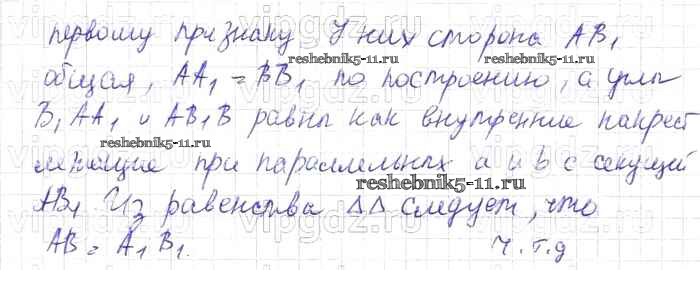 первому признаку У них сторона AB₁
общая, AA₁ = BB₁ по построению, а углы
B₁AA₁ и AB₁B равны как внутренние накрест
лежащие при параллельных a и b с секущей
AB₁ Из равенства ΔΔ следует, что
AB = A₁B₁. ч.т.д
reshebnik5-11.ru
reshebnik5-11.ru
reshebnik5-11.ru
vipgdz.ru